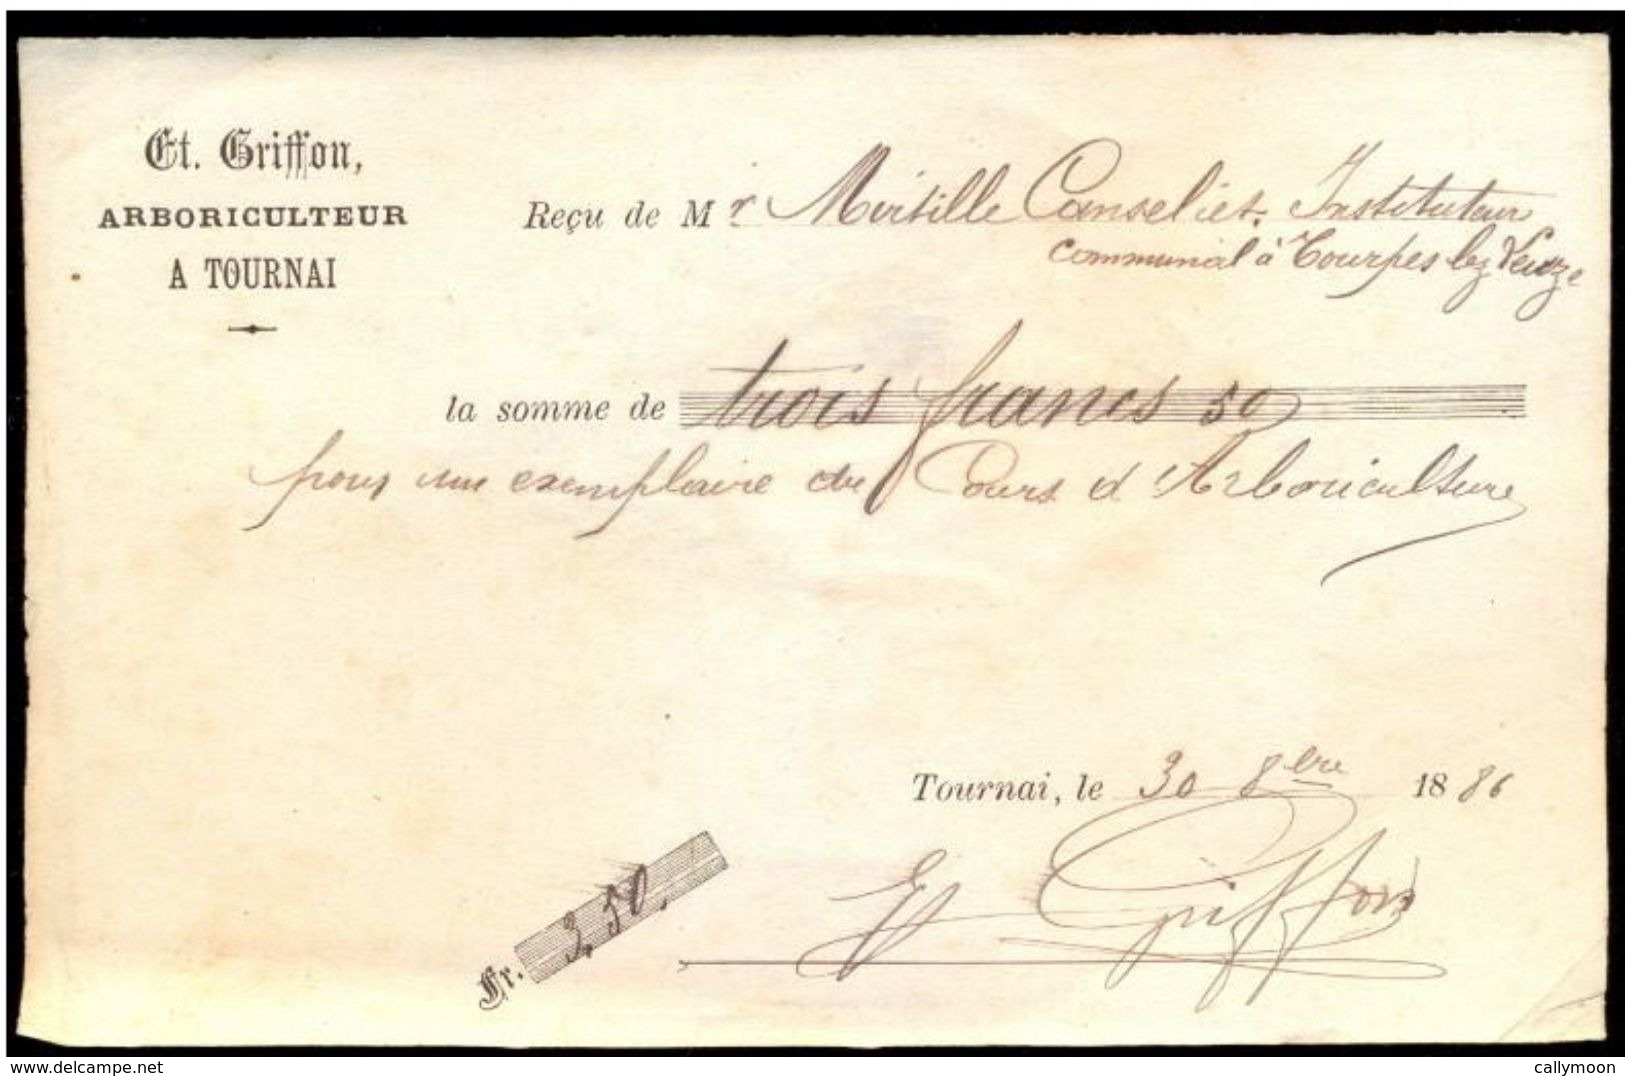 Et. Griffon,
ARBORICULTEUR
A TOURNAI
Reçu de Mr Mirtille Canseliet. Instituteur
communal à Tourpes lez Leuze
la somme de trois francs 50
pour un exemplaire du Cours d'Arboriculture
Tournai, le 30 8bre 1886
Fr. 3,50.
Et Griffon
delcampe.net
callymoon